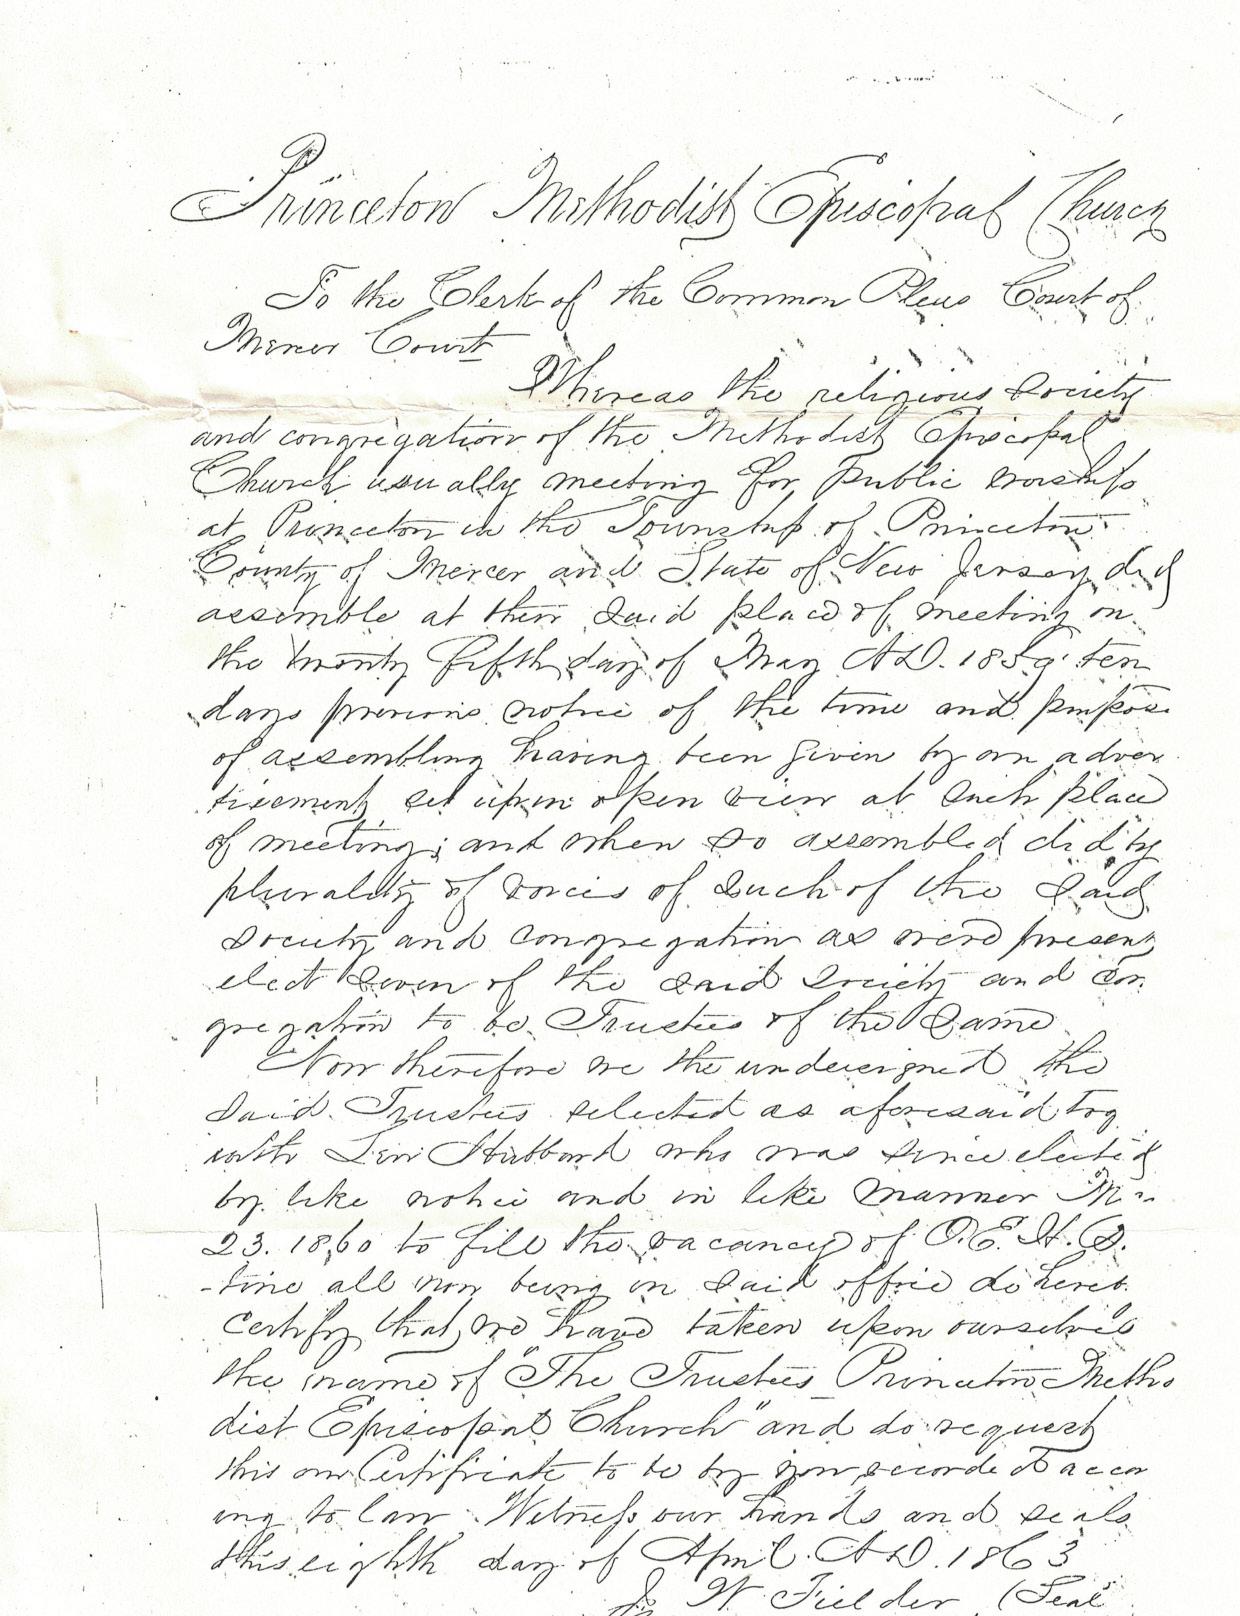 Princeton Methodist Episcopal Church
To the Clerk of the Common Pleas Court of
Mercer Court
Whereas the religious society
and congregation of the Methodist Episcopal
Church usually meeting for public worship
at Princeton in the Township of Princeton
County of Mercer and State of New Jersey did
assemble at their said place of meeting on
the twenty fifth day of May AD. 1859 ten
days previous notice of the time and purpose
of assembling having been given by an adver
tisement set up in open view at such place
of meeting; and when so assembled did by
plurality of voices of such of the said
society and congregation as were present
elect seven of the said society and con
gregation to be Trustees of the same
Now therefore we the undersigned the
said Trustees selected as aforesaid tog
with Levi Hubbard who was since elected
by like notice and in like manner
23. 1860 to fill the vacancy of O.E.H.
-tine all now being in said office do hereb
certify that we have taken upon ourselves
the name of "The Trustees Princeton Metho
dist Episcopal Church" and do request
this our Certificate to be by you recorded accor
ing to law. Witness our hands and seals
this eighth day of April. AD. 1863
J. W. Fielder (Seal